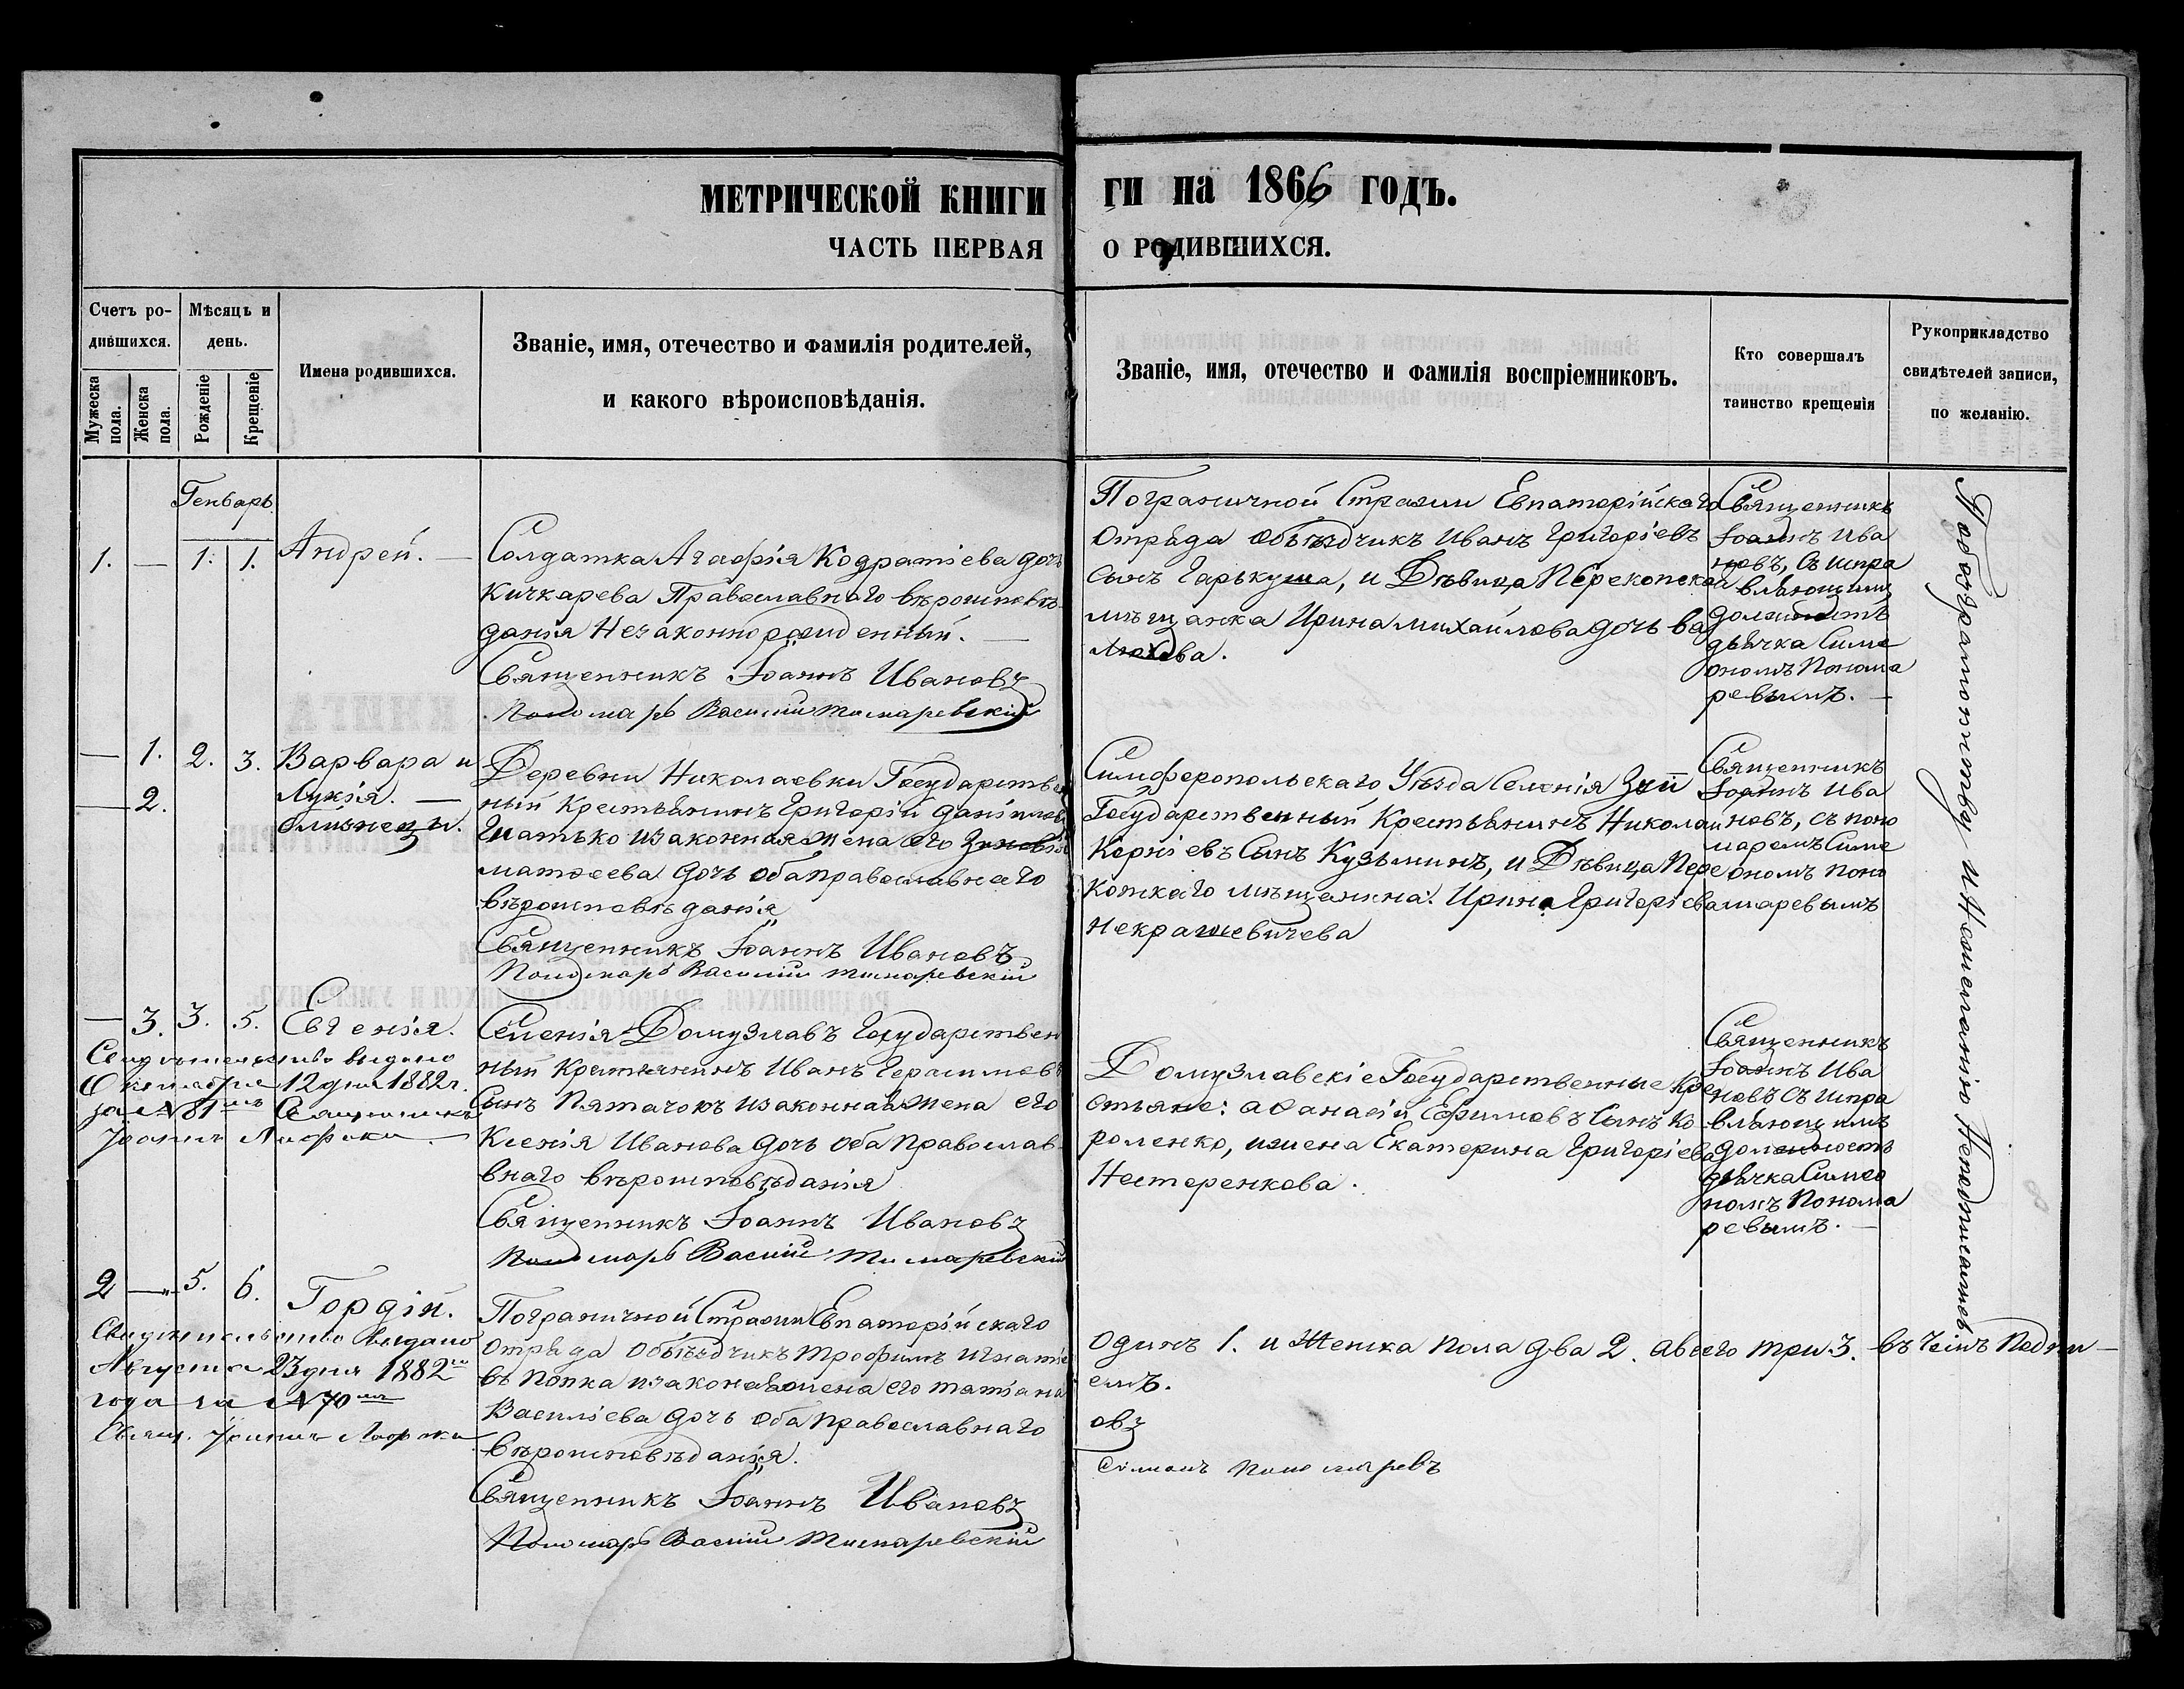 МЕТРИЧЕСКОЙ КНИГИ
ЧАСТЬ ПЕРВАЯ
ги на 1866 годъ.
о родившихся.
Счетъ ро-
дившихся.
Мужеска
пола.
Женска
пола.
Мѣсяцъ и
день.
Рожденіе
Крещеніе
Имена родившихся.
Званіе, имя, отечество и фамилія родителей,
и какого вѣроисповѣданія.
Званіе, имя, отечество и фамилія воспріемниковъ.
Кто совершалъ
таинство крещенія
Рукоприкладство
свидѣтелей записи,
по желанію.
Генварь
1. — 1. 1.
Андрей. —
Солдатка Агафія Кодратіева дочь
Кичкарева Православнаго вѣроисповѣ-
данія Незаконнорожденный. —
Священникъ Іоаннъ Ивановъ
Пономарь Василій Тимаревскій
Пограничной Стражи Евпаторійскаго
Отряда объѣздчикъ Иванъ Григоріевъ
сынъ Гарькуша, и Дѣвица Перекопская
мѣщанка Ирина Михайлова дочь
Священникъ
Іоаннъ Ива
новъ, Съ испра
вляющимъ
должность
дьячка Симе
ономъ Понома
ревымъ. —
— 1. 2. 3.
— 2.
Варвара и
Лукія. —
близнецы.
Деревни Николаевки Государствен
ный Крестьянинъ Григорій Даніиловъ
Гнатько и законная жена его Зиновія
матѳеева дочь оба православнаго
вѣроисповѣданія
Священникъ Іоаннъ Ивановъ
Пономарь Василій Тимаревскій
Симферопольскаго Уѣзда Селенія Зуи
Государственный Крестьянинъ Николай
Корніевъ Сынъ Кузьминъ, и Дѣвица Пере
копскаго мѣщанина Ирина Григоріева
Некрашевичева
Священникъ
Іоаннъ Ива
новъ, съ поно
маремъ Симе
ономъ Поно
маревымъ
— 3. 3. 5.
Евгенія.
Свидѣтельство выдано
Октября 12 дня 1882 г.
за № 81 мъ Священникъ
Селенія Домузлавъ Государствен
ный Крестьянинъ Иванъ Герасимовъ
Сынъ Пятачокъ и законная жена его
Ксенія Иванова дочь оба Православ-
внаго вѣроисповѣданія
Священникъ Іоаннъ Ивановъ
Пономарь Василій Тимаревскій
Домузлавскіе Государственные Кре
стьяне: Аѳанасій Ефимовъ Сынъ Ко
роленко, и жена Екатерина Григоріева
Нестеренкова.
Священникъ
Іоаннъ Ива
новъ Съ испра
вляющимъ
должность
дьячка Симео
номъ Понома
ревымъ. —
2 — 5. 6.
Гордій.
Свидѣтельство выдано
Августа 23 дня 1882 го
года за № 70 мъ
Пограничной Стражи Евпаторійскаго
отряда объѣздчикъ Трофимъ Игнатіе
въ Попка и законная жена его Татіана
Василіева дочь оба Православнаго
вѣроисповѣданія.
Священникъ Іоаннъ Ивановъ
Пономарь Василій Тимаревскій
одинъ 1. и Женска пола два 2. а всего три 3. въ чемъ Подпи—
емъ.
овъ
Симонъ Пономаревъ